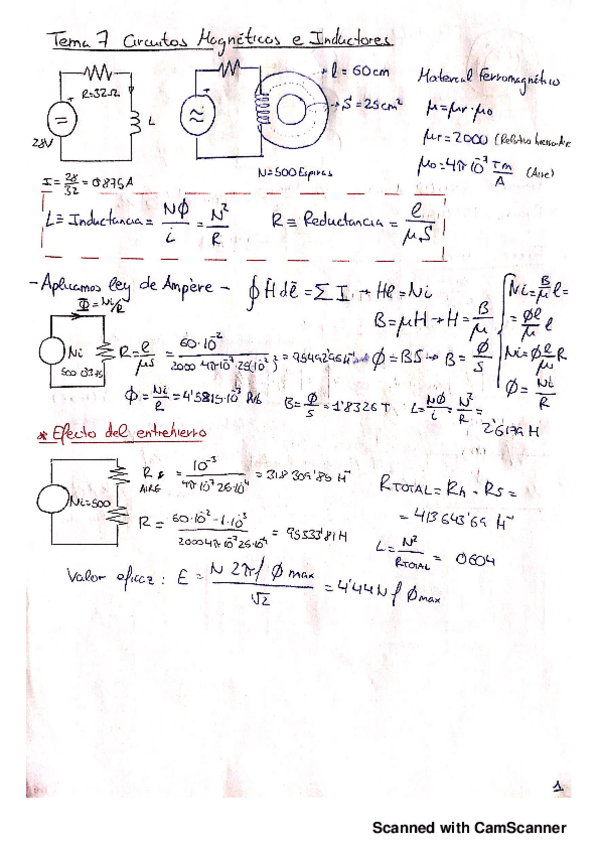 Tema 7 Circuitos Magnéticos e Inductores
R=32Ω
L
28V
I = 28/32 = 0'875A
l = 60cm
S = 25cm²
N=500 Espiras
Material ferromagnético
μ=μr·μo
μr=2000
μo=4π10⁻⁷ Tm/A (Aire)
L≡Inductancia = NΦ/i = N²/R
R≡Reductancia = l/μS
-Aplicamos ley de Ampère- ∮H̄dl̄ = ΣI → Hl=Ni
B=μH → H=B/μ
Φ=BS → B=Φ/S
Ni=B/μ l=
=Φl/μ l
Ni=Φl/μ R
Φ=Ni/R
Φ=Ni/R
Ni
R=l/μS = 60·10⁻²/
Φ=Ni/R=4'5815·10⁻³ Wb
B=Φ/S=1'8326T
L=NΦ/i=N²/R=
2'6179H
* Efecto del entrehierro
Ni=500
R AIRE = 10⁻³/4π10⁻⁷25·10⁻⁴ = 318309'89 H⁻¹
R = 60·10⁻²-1·10⁻³/2000 4π·10⁻⁷25·10⁻⁴ = 95333'81H
RTOTAL=
= 413643'69 H⁻¹
L=N²/RTOTAL = 0604
Valor eficaz: E = N 2πf Φmax/√2 = 4'44NfΦmax
1
Scanned with CamScanner